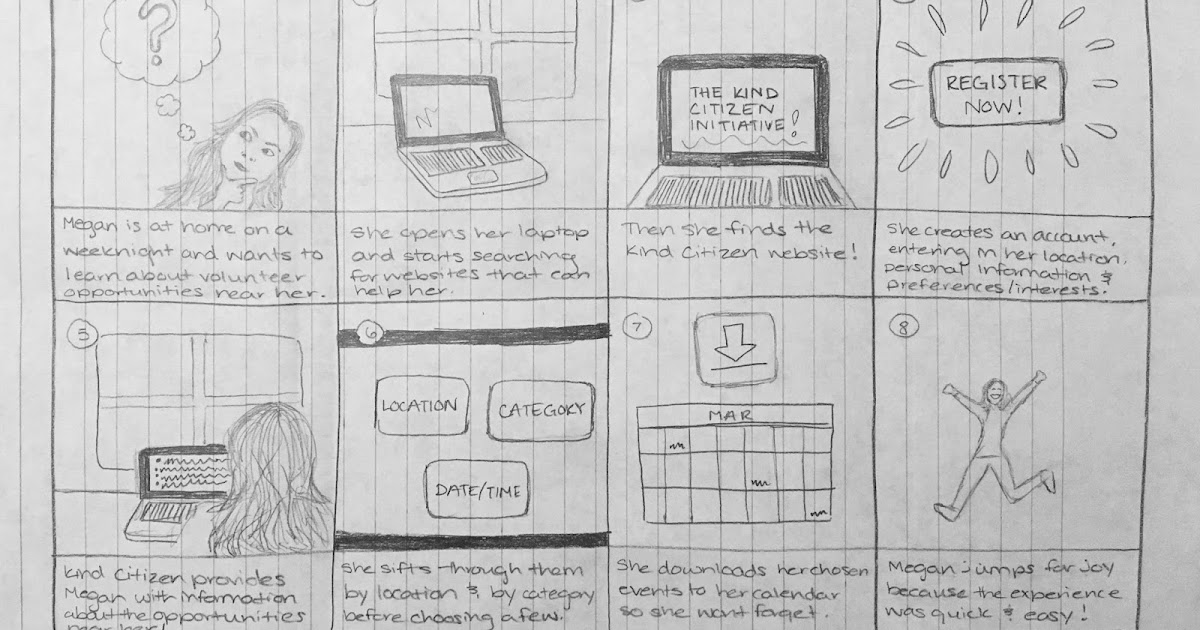 ?
THE KIND
CITIZEN
INITIATIVE!
REGISTER
NOW!
Megan is at home on a
weeknight and wants to
learn about volunteer
opportunities near her.
She opens her laptop
and starts searching
for websites that can
help her.
Then she finds the
Kind Citizen website!
She creates an account,
entering in her location,
personal information &
preferences/interests.
5
6
LOCATION
CATEGORY
DATE/TIME
7
MAR
8
Kind Citizen provides
Megan with information
about the opportunities
near her!
She sifts through them
by location & by category
before choosing a few.
She downloads her chosen
events to her calendar
so she wont forget.
Megan jumps for joy
because the experience
was quick & easy!